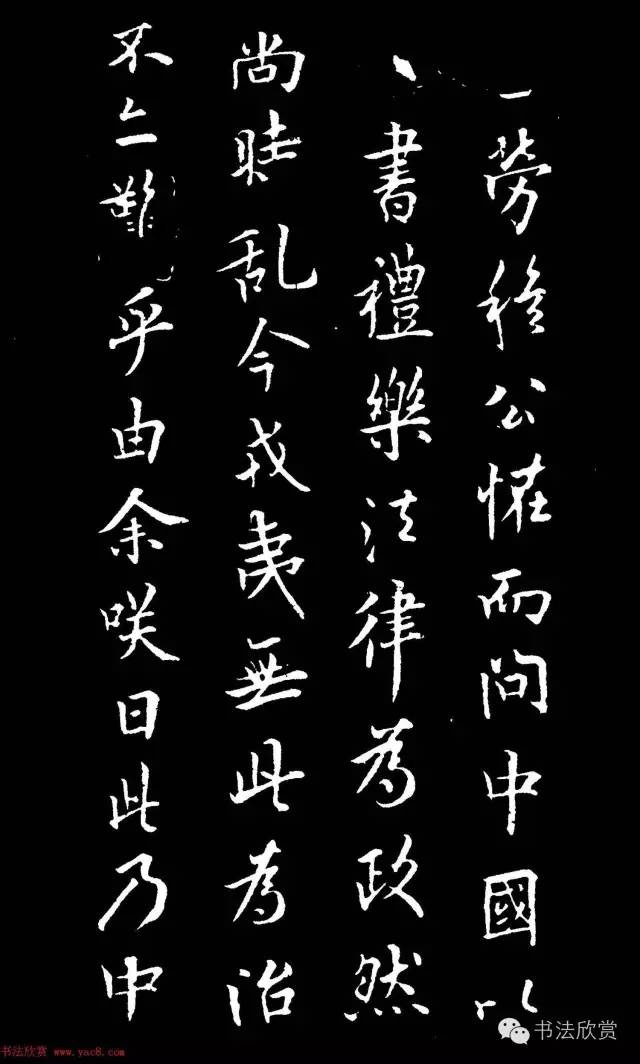 勞穆公怪而問中國以
書禮樂法律為政然
尚時乱今戎夷無此為治
不亦難乎由余咲曰此乃中
书法欣赏 www.yac8.com
书法欣赏